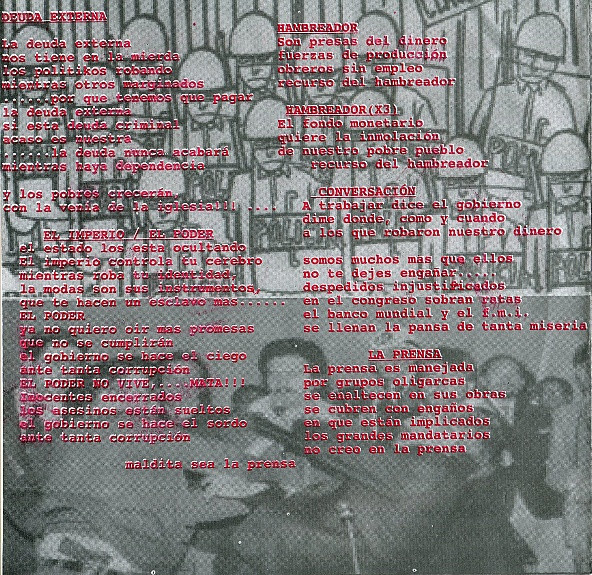 DEUDA EXTERNA
La deuda externa
nos tiene en la mierda
los politikos robando
mientras otros marginados
......por que tenemos que pagar
la deuda externa
si esta deuda criminal
acaso es nuestra
......la deuda nunca acabará
mientras haya dependencia
y los pobres crecerán,
con la venia de la iglesia!!! ....
EL IMPERIO / EL PODER
el estado los esta ocultando
El imperio controla tu cerebro
mientras roba tu identidad,
la modas son sus instrumentos,
que te hacen un esclavo mas......
EL PODER
ya no quiero oir mas promesas
que no se cumplirán
el gobierno se hace el ciego
ante tanta corrupción
EL PODER NO VIVE,....MATA!!!
inocentes encerrados
los asesinos están sueltos
el gobierno se hace el sordo
ante tanta corrupción
HAMBREADOR
Son presas del dinero
fuerzas de producción
obreros sin empleo
recurso del hambreador
HAMBREADOR(X3)
El fondo monetario
quiere la inmolación
de nuestro pobre pueblo
recurso del hambreador
CONVERSACIÓN
A trabajar dice el gobierno
dime donde, como y cuando
a los que robaron nuestro dinero
somos muchos mas que ellos
no te dejes engañar.....
despedidos injustificados
en el congreso sobran ratas
el banco mundial y el f.m.i.
se llenan la pansa de tanta miseria
LA PRENSA
La prensa es manejada
por grupos oligarcas
se enaltecen en sus obras
se cubren con engaños
en que están implicados
los grandes mandatarios
no creo en la prensa
maldita sea la prensa